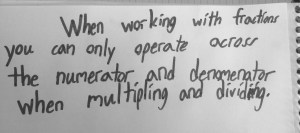 When working with fractions
you can only operate across
the numerator and denomenator
when multipling and dividing.